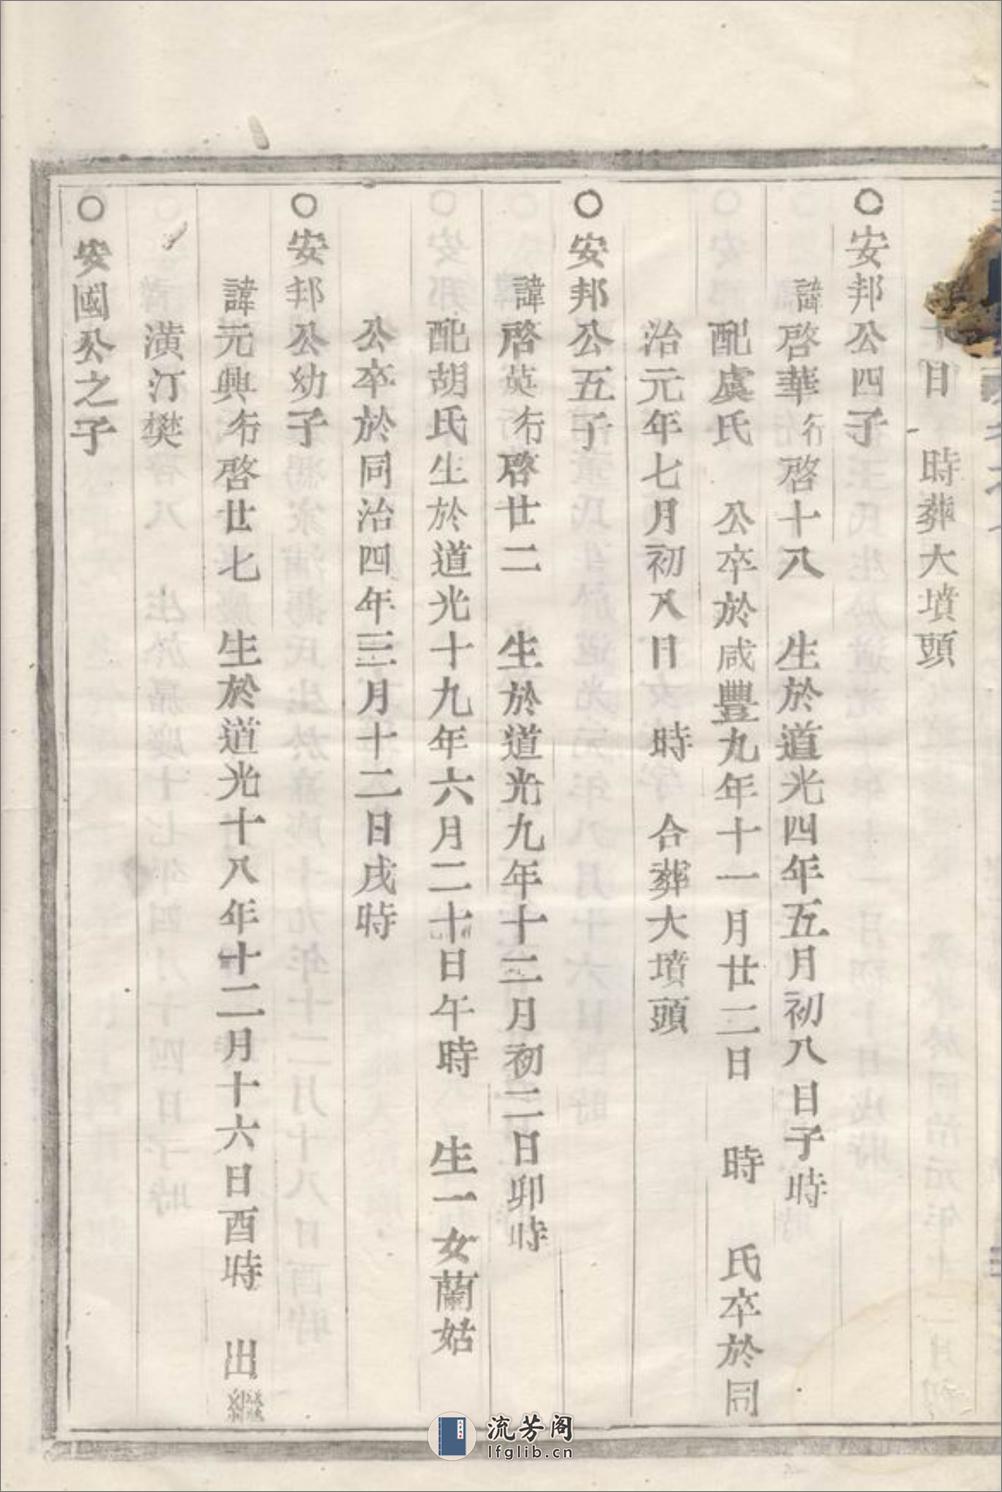 十日　時葬大墳頭
○安邦公四子
諱啓華行啓十八　生於道光四年五月初八日子時
配虞氏　公卒於咸豐九年十一月廿二日　時　氏卒於同
治元年七月初八日　時　合葬大墳頭
○安邦公五子
諱啓英行啓廿二　生於道光九年十二月初二日卯時
配胡氏生於道光十九年六月二十日午時　生一女蘭姑
公卒於同治四年三月十二日戌時
○安邦公幼子
諱元興行啓廿七　生於道光十八年十二月十六日酉時　出繼
潢汀樊
○安國公之子
流芳阁
lfglib.cn